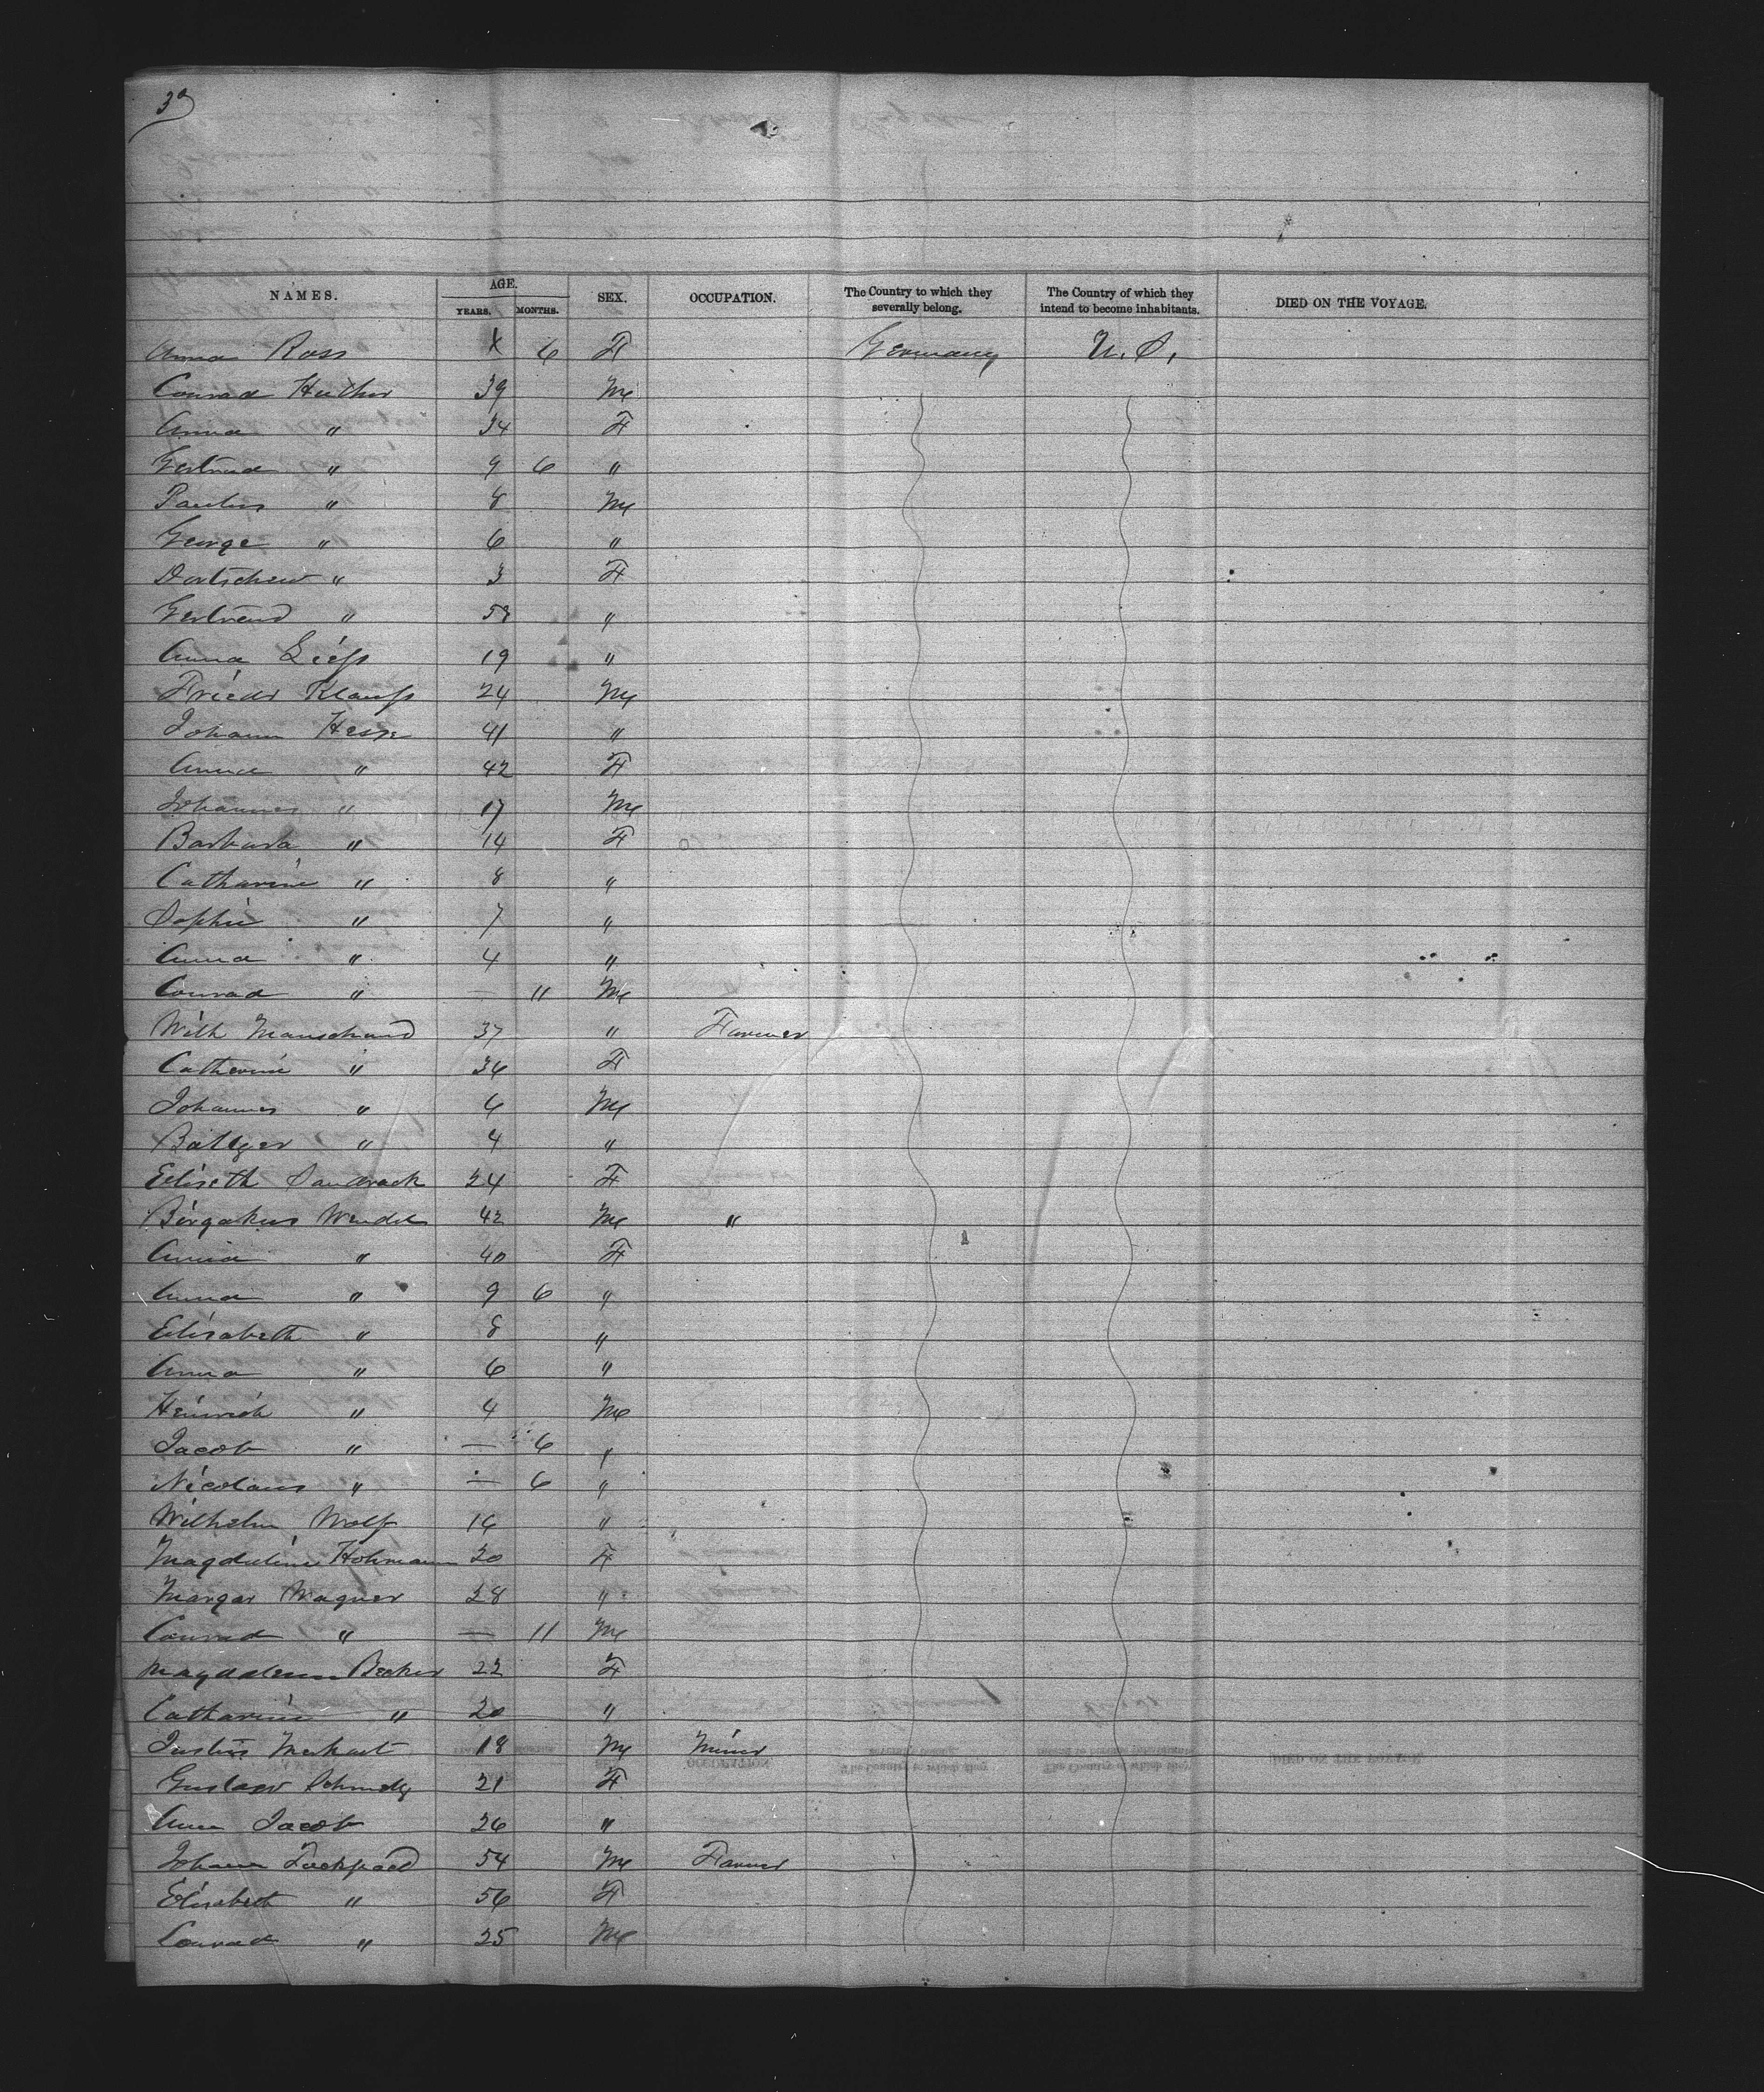 3
NAMES. AGE. YEARS. MONTHS. SEX. OCCUPATION. The Country to which they severally belong. The Country of which they intend to become inhabitants. DIED ON THE VOYAGE.
Anna Ross 6 F Germany U. S.
Conrad Huther 39 M
Anna " 34 F
Gertrud " 9 6 "
Paulus " 8 M
George " 6 "
Dortchew " 3 F
Gertraud " 58 "
Anna Liess 19 "
Friedr Klauss 24 M
Johann Hesse 41 "
Anna " 42 F
Johannes " 17 M
Barbara " 14 F
Catharine " 8 "
Sophie " 7 "
Anna " 4 "
Conrad " — 11 M
Wilh Manschand 37 " Farmer
Catherine " 36 F
Johannes " 6 M
Baltzer " 4 "
Eliseth Sandrock 24 F
Wendel 42 M "
Anna " 40 F
Anna " 9 6 "
Elisabeth " 8 "
Anna " 6 "
Heinrich " 4 M
Jacob " — 6 "
Nicolaus " — 6 "
Wilhelm Wolf 16 "
Magdaline Hohmann 20 F
Margar Wagner 28 "
Conrad " — 11 M
Magdalena Becker 22 F
Catharine " 20 "
Justus 18 M Miner
Gustav 21 F
Anna Jacob 26 "
Johann 54 M Farmer
Elisabeth " 56 F
Conrad " 25 M